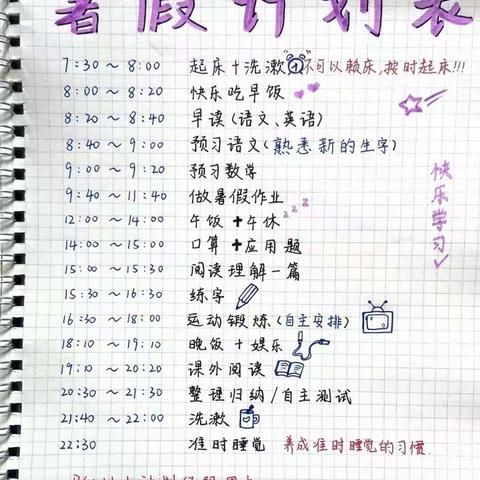 暑假计划表
7:30 ~ 8:00 起床+洗漱 不可以赖床,按时起床!!!
8:00 ~ 8:20 快乐吃早饭
8:20 ~ 8:40 早读(语文、英语)
8:40 ~ 9:00 预习语文(熟悉新的生字)
9:00 ~ 9:20 预习数学
9:40 ~ 11:40 做暑假作业
12:00 ~ 14:00 午饭+午休 zzz
14:00 ~ 15:00 口算+应用题
15:00 ~ 15:30 阅读理解一篇
15:30 ~ 16:30 练字
16:30 ~ 18:00 运动锻炼(自主安排)
18:10 ~ 19:10 晚饭+娱乐
19:10 ~ 20:20 课外阅读
20:30 ~ 21:30 整理归纳/自主测试
21:40 ~ 22:00 洗漱
22:30 准时睡觉 养成准时睡觉的习惯.
快乐学习